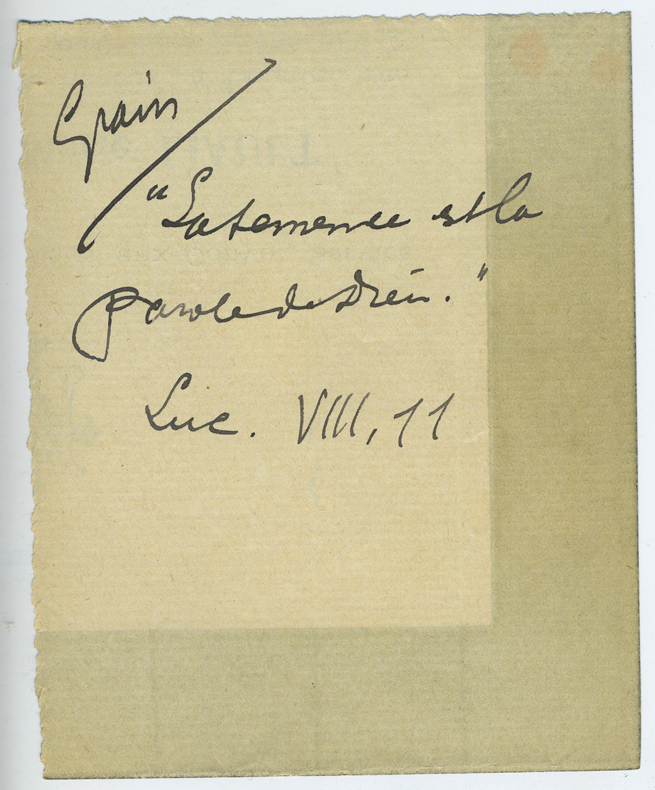 Grain
"La semence est la
parole de Dieu."
Luc. VIII, 11